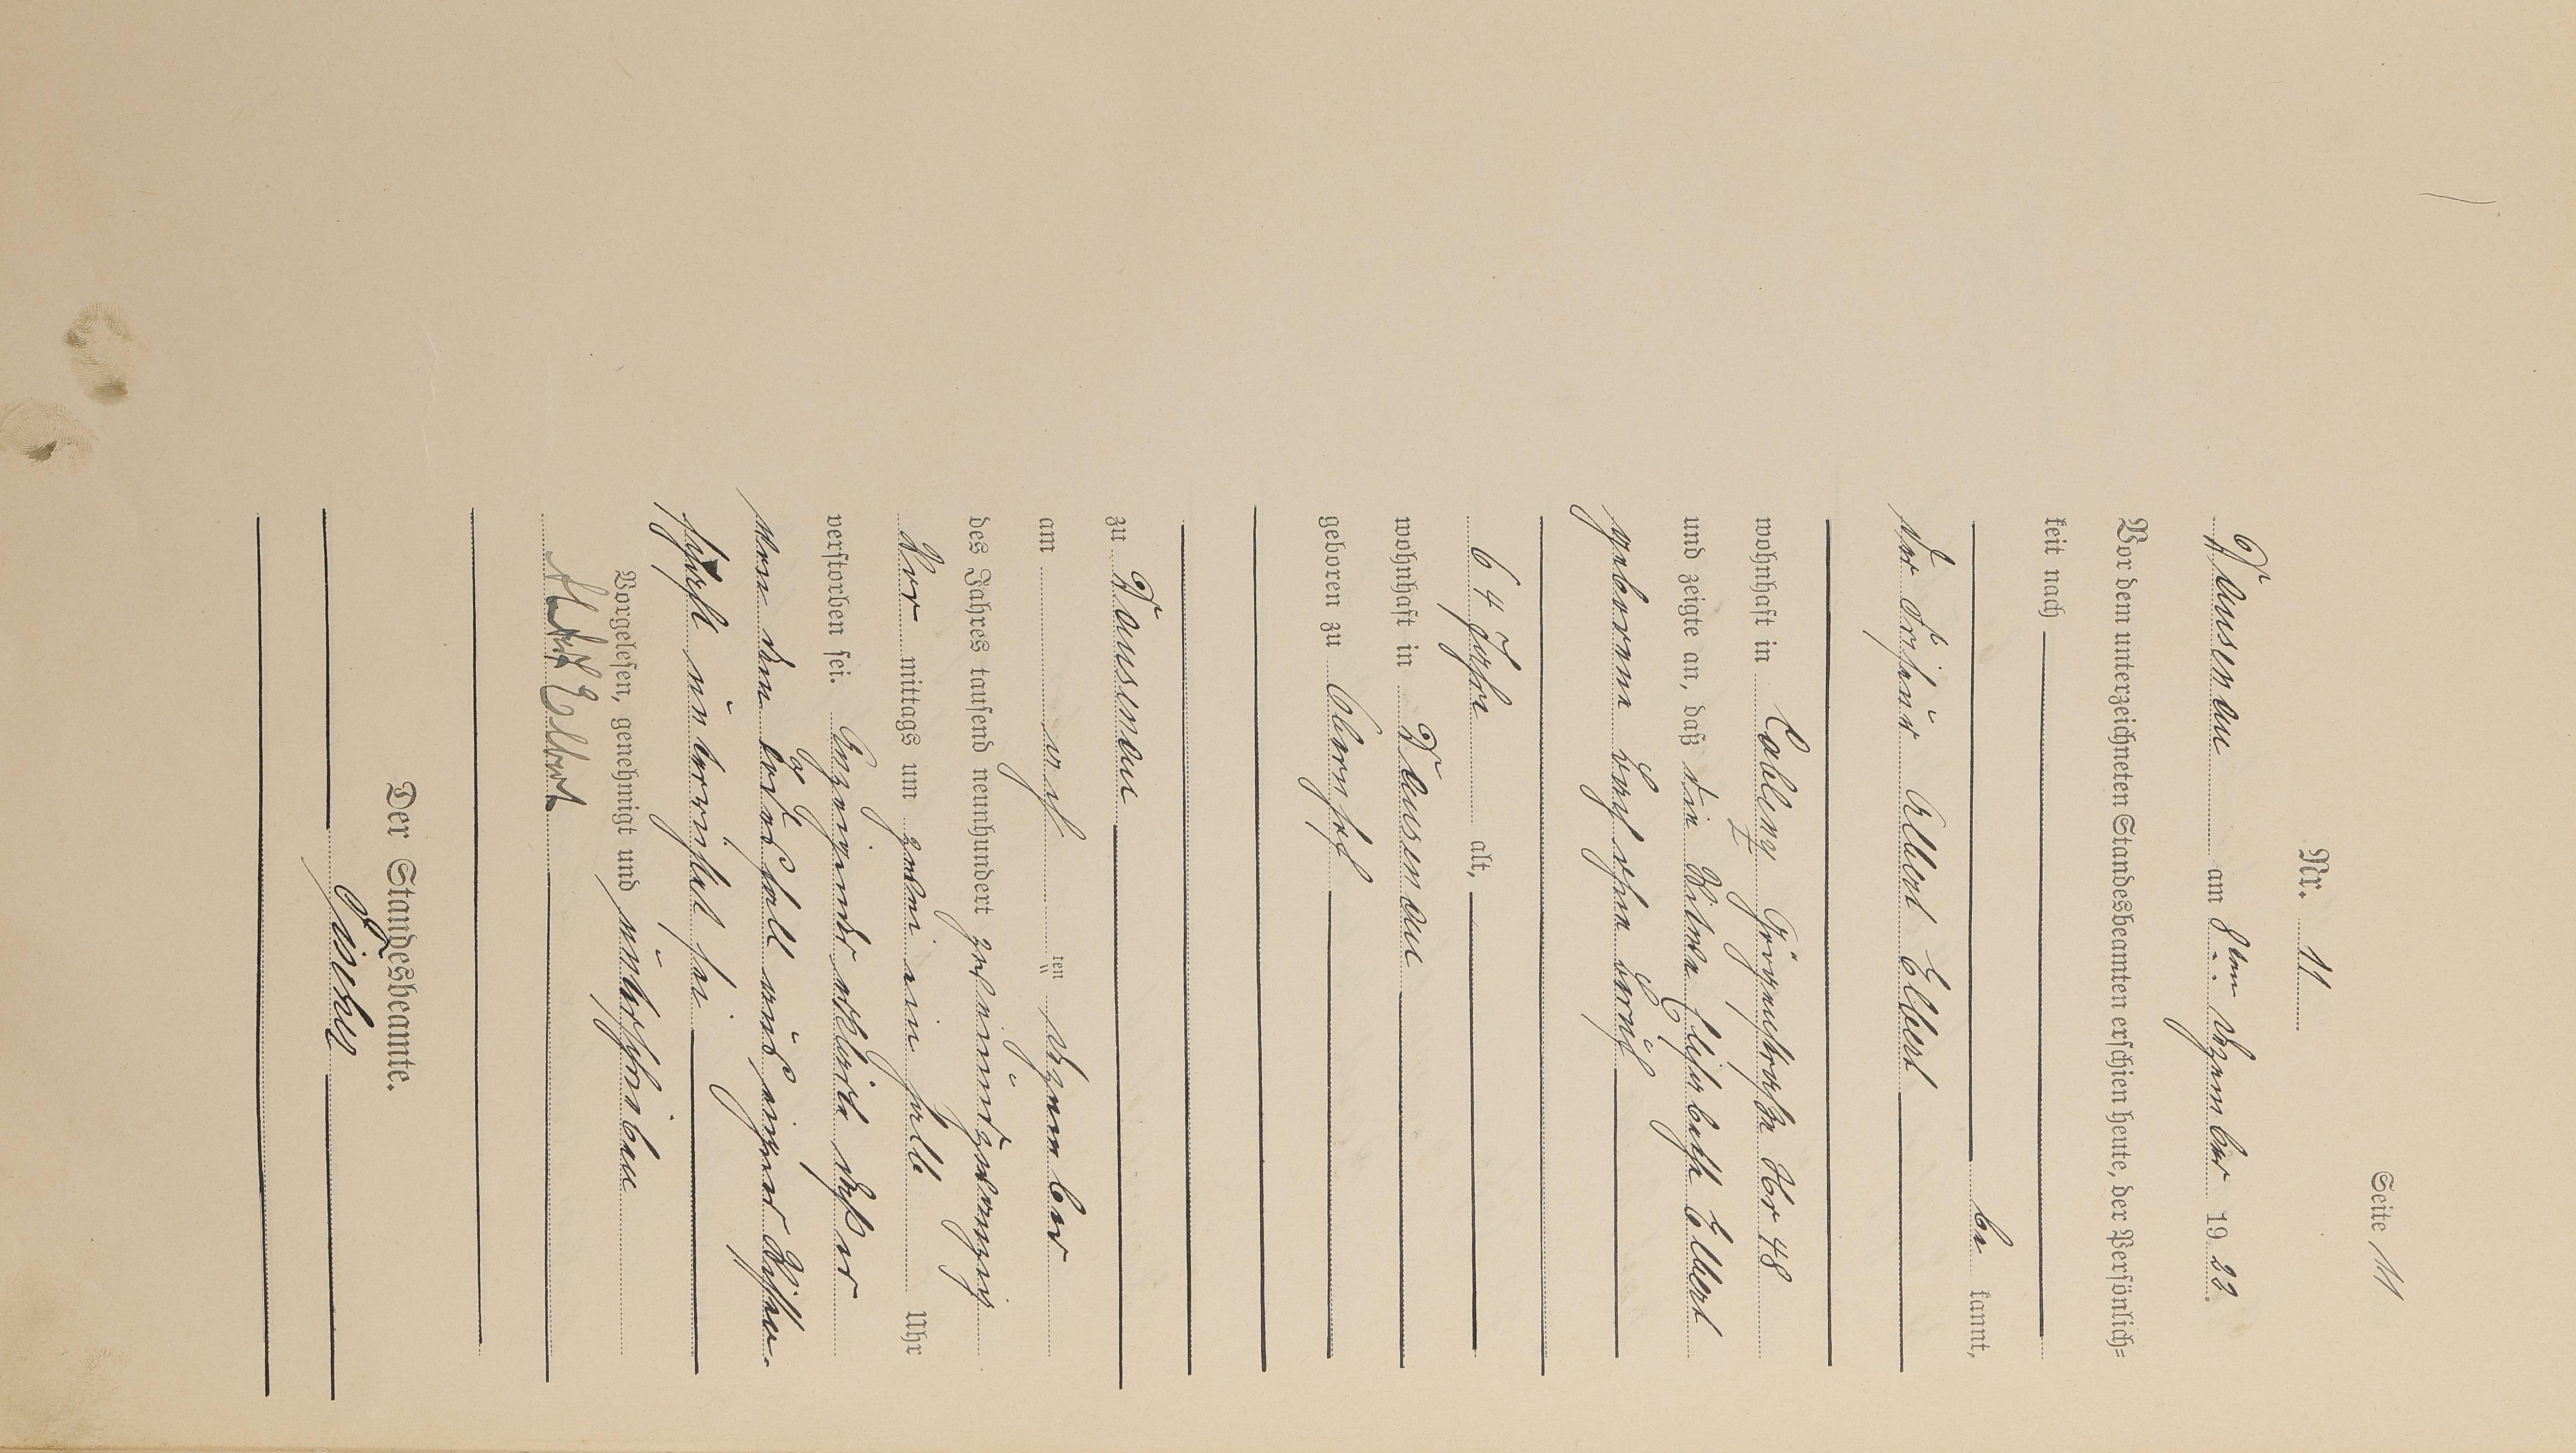 Seite 11
Nr. 11
Dausenau am 8ten Dezember 1922.
Vor dem unterzeichneten Standesbeamten erschien heute, der Persönlich=
keit nach
be kannt,
der Frisör Albert Elbert
wohnhaft in Coblenz Nr 48
und zeigte an, daß die Witwe Elisabeth Elbert
geborene
64 Jahre alt,
wohnhaft in Dausenau
geboren zu
zu Dausenau
am acht ten Dezember
des Jahres tausend neunhundert zweiundzwanzig
Vor mittags um zwei ein halb Uhr
verstorben sei. Anzeigender erklärte daß er
von dem Todesfall aus eigner Wissen-
schaft unterrichtet sei.
Vorgelesen, genehmigt und unterschrieben
Elbert
Der Standesbeamte.